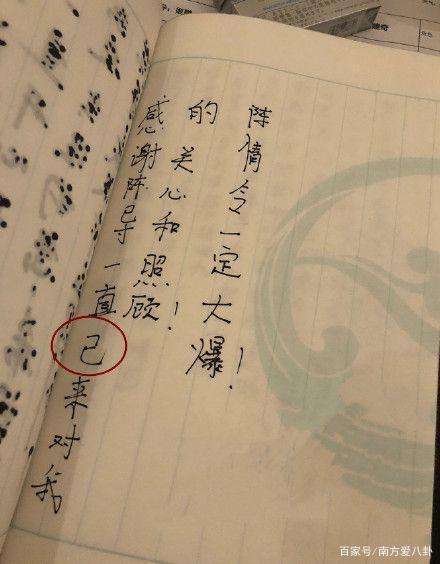 感谢陈导一直己来对我
的关心和照顾！
陈情令一定大爆！
百家号/南方爱八卦